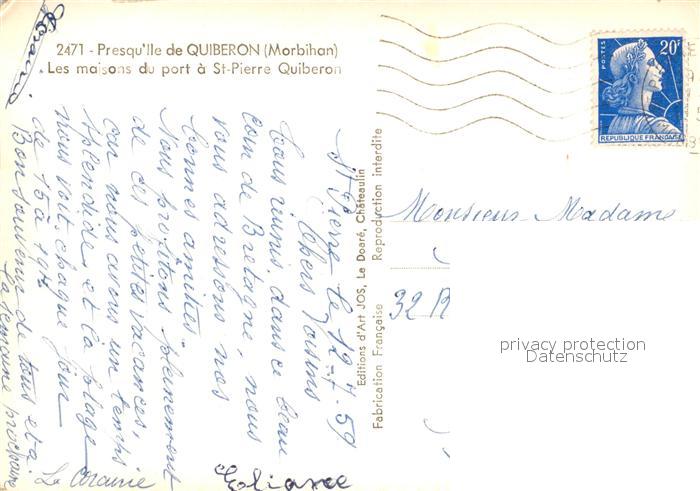 2471 - Presqu'Ile de QUIBERON (Morbihan)
Les maisons du port à St-Pierre Quiberon
POSTES
20F
REPUBLIQUE FRANÇAISE
St Pierre le 12-7-59
Chers Voisins
Tous réunis, dans ce beau
coin de Bretagne, nous
vous adressons nos
bonnes amitiés.
Nous profitons pleinement
de ces petites vacances,
car nous avons un temps
splendide et la plage
nous voit chaque jour
de 15 à 19h
Bon souvenir de tous et à
la semaine prochaine
Eliane
Editions d'Art JOS, Le Doaré, Châteaulin
Fabrication Française Reproduction interdite
Monsieur Madame
32 R
privacy protection
Datenschutz